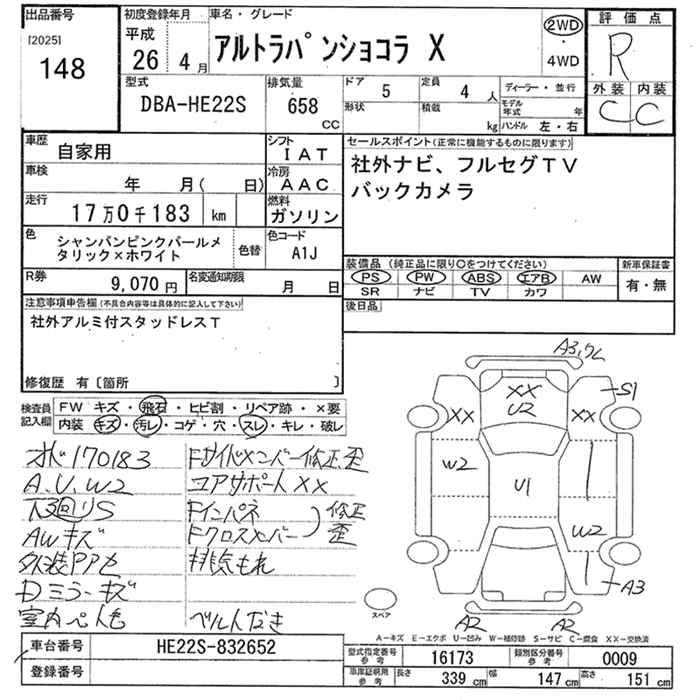 出品番号
[2025]
148
初度登録年月
平成
26 4月
車名・グレード
アルトラパンショコラ X
2WD
・
4WD
評価点
R
外装 内装
C C
型式
DBA-HE22S
排気量
658
cc
ドア 5
定員 4 人
形状
積載 kg
ディーラー・並行
モデル年式 年
ハンドル 左・右
車歴
自家用
シフト
IAT
車検
年 月( 日)
冷房
AAC
走行
17万0千183 km
燃料
ガソリン
色
シャンパンピンクパールメ
タリック×ホワイト
色替
色コード
A1J
R券
9,070円
名変通知期限
月 日
セールスポイント(正常に機能するものに限ります)
社外ナビ、フルセグTV
バックカメラ
装備品(純正品に限り○をつけてください)
PS PW ABS エアB AW
SR ナビ TV カワ
新車保証書
有・無
後日品
注意事項申告欄(不具合内容等は具体的に記入して下さい)
社外アルミ付スタッドレスT
修復歴 有〔箇所 〕
検査員
記入欄
FW キズ・飛石・ヒビ割・リペア跡・×要
内装 キズ・汚レ・コゲ・穴・スレ・キレ・破レ
オド170183
A.U.W2
下回りS
AWキズ
外装PP色
Dミラーキズ
室内ペ人色
Fサイドメンバー修正、歪
コアサポートXX
Fインパネ
Fクロスメンバー
修正
歪
排気もれ
ベルトなき
A3,ワレ
S1
XX
U2
XX
XX
W2
U1
W2
A3
A2
A2
スペア
A−キズ E−エクボ U−凹み W−補修跡 S−サビ C−腐食 XX−交換済
車台番号
HE22S-832652
登録番号
型式指定番号
参考
16173
類別区分番号
参考
0009
車庫証明用
参考
長さ 339 cm
幅 147 cm
高さ 151 cm